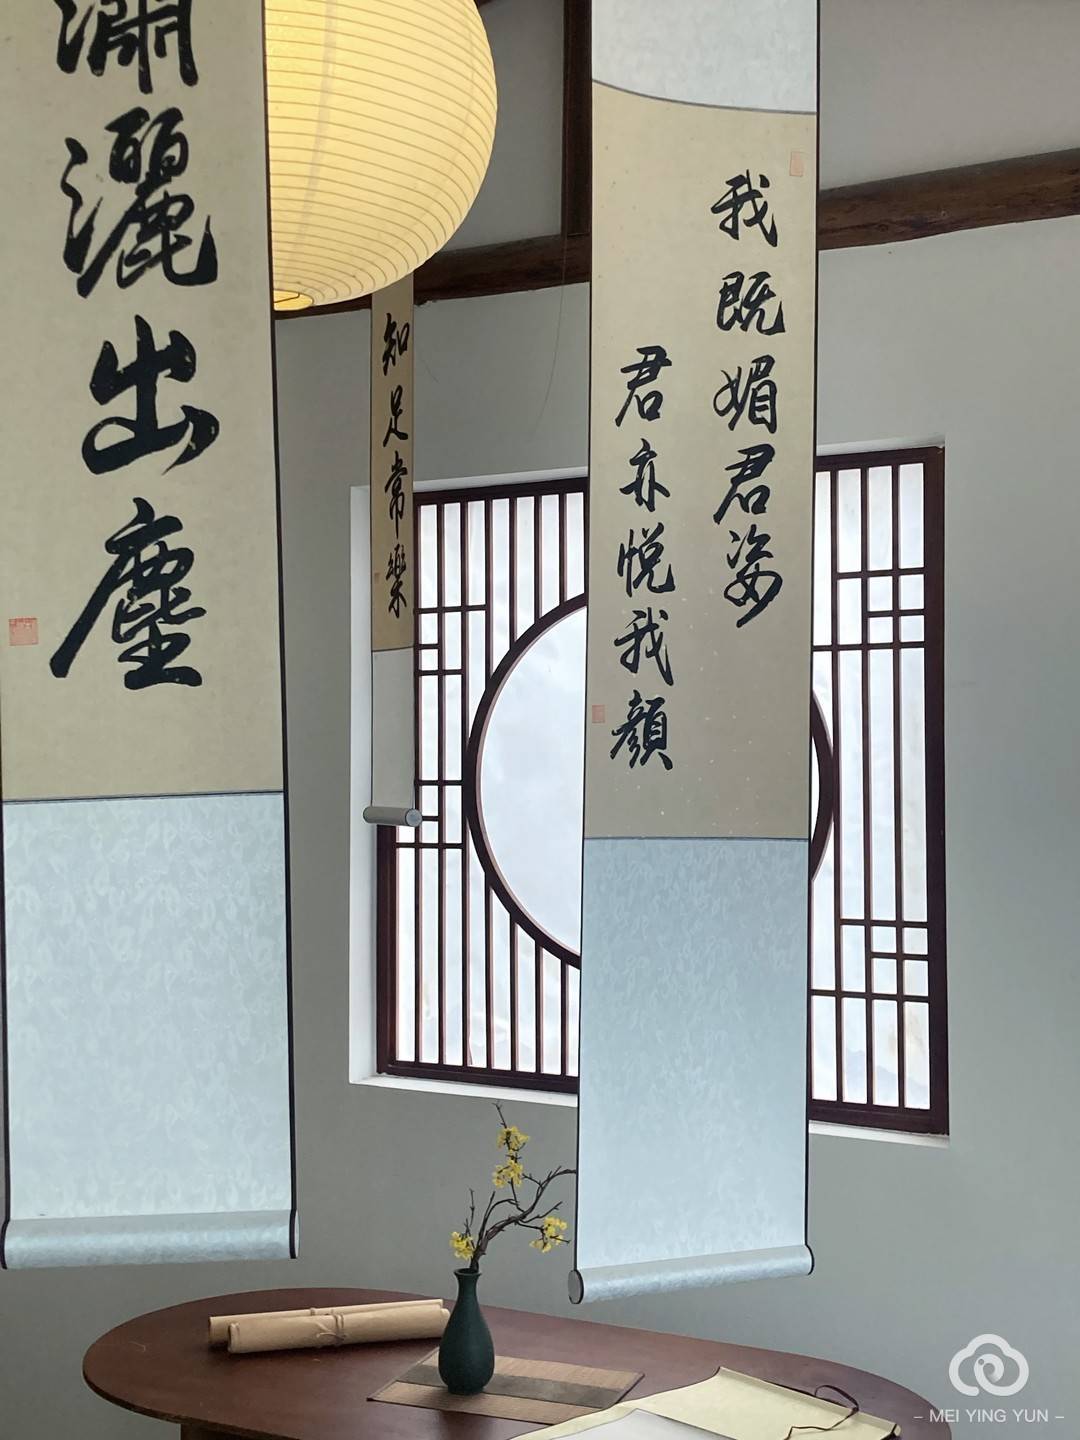 瀟灑出塵
知足常樂
我既媚君姿
君亦悦我顏
– MEI YING YUN –